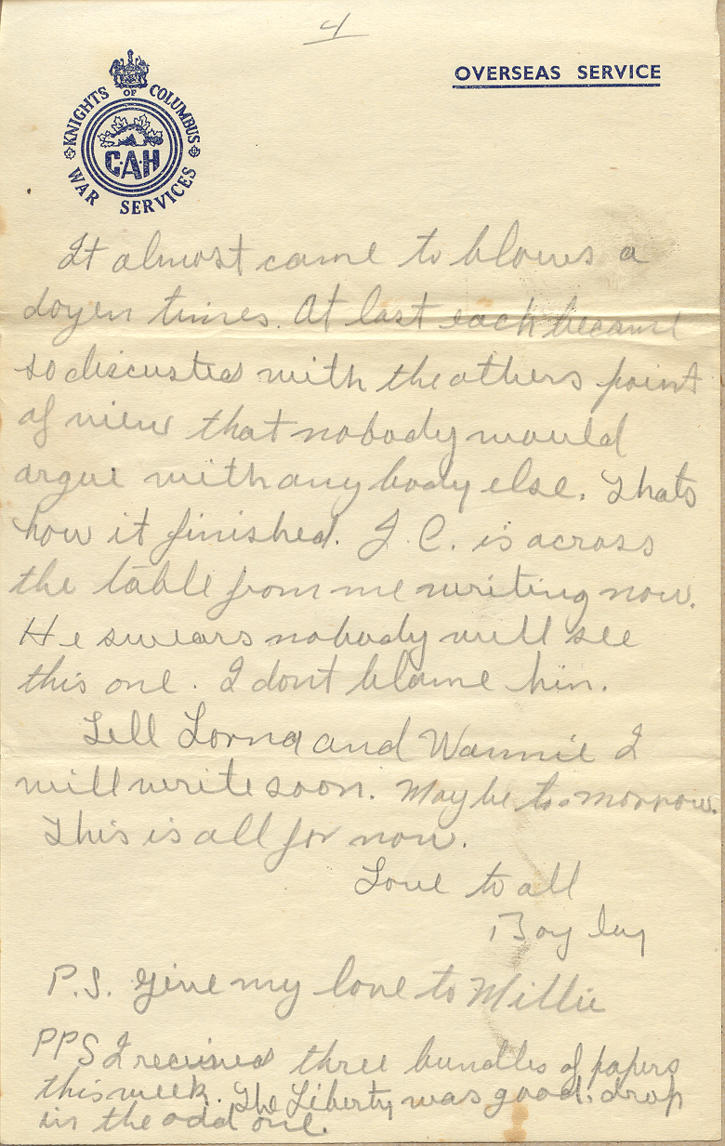 4
KNIGHTS OF COLUMBUS
C·A·H
WAR SERVICES
OVERSEAS SERVICE
It almost came to blows a
dozen times. At last each became
so discusted with the others point
of view that nobody would
argue with any body else. Thats
how it finished. J. C. is across
the table from me writing now.
He swears nobody will see
this one. I dont blame him.
Tell Lorna and Wannie I
will write soon. Maybe tomorrow.
This is all for now.
Love to all
P.S. Give my love to Millie
PPS I recieved three bundles of papers
this week. The Liberty was good. drop
in the odd one.